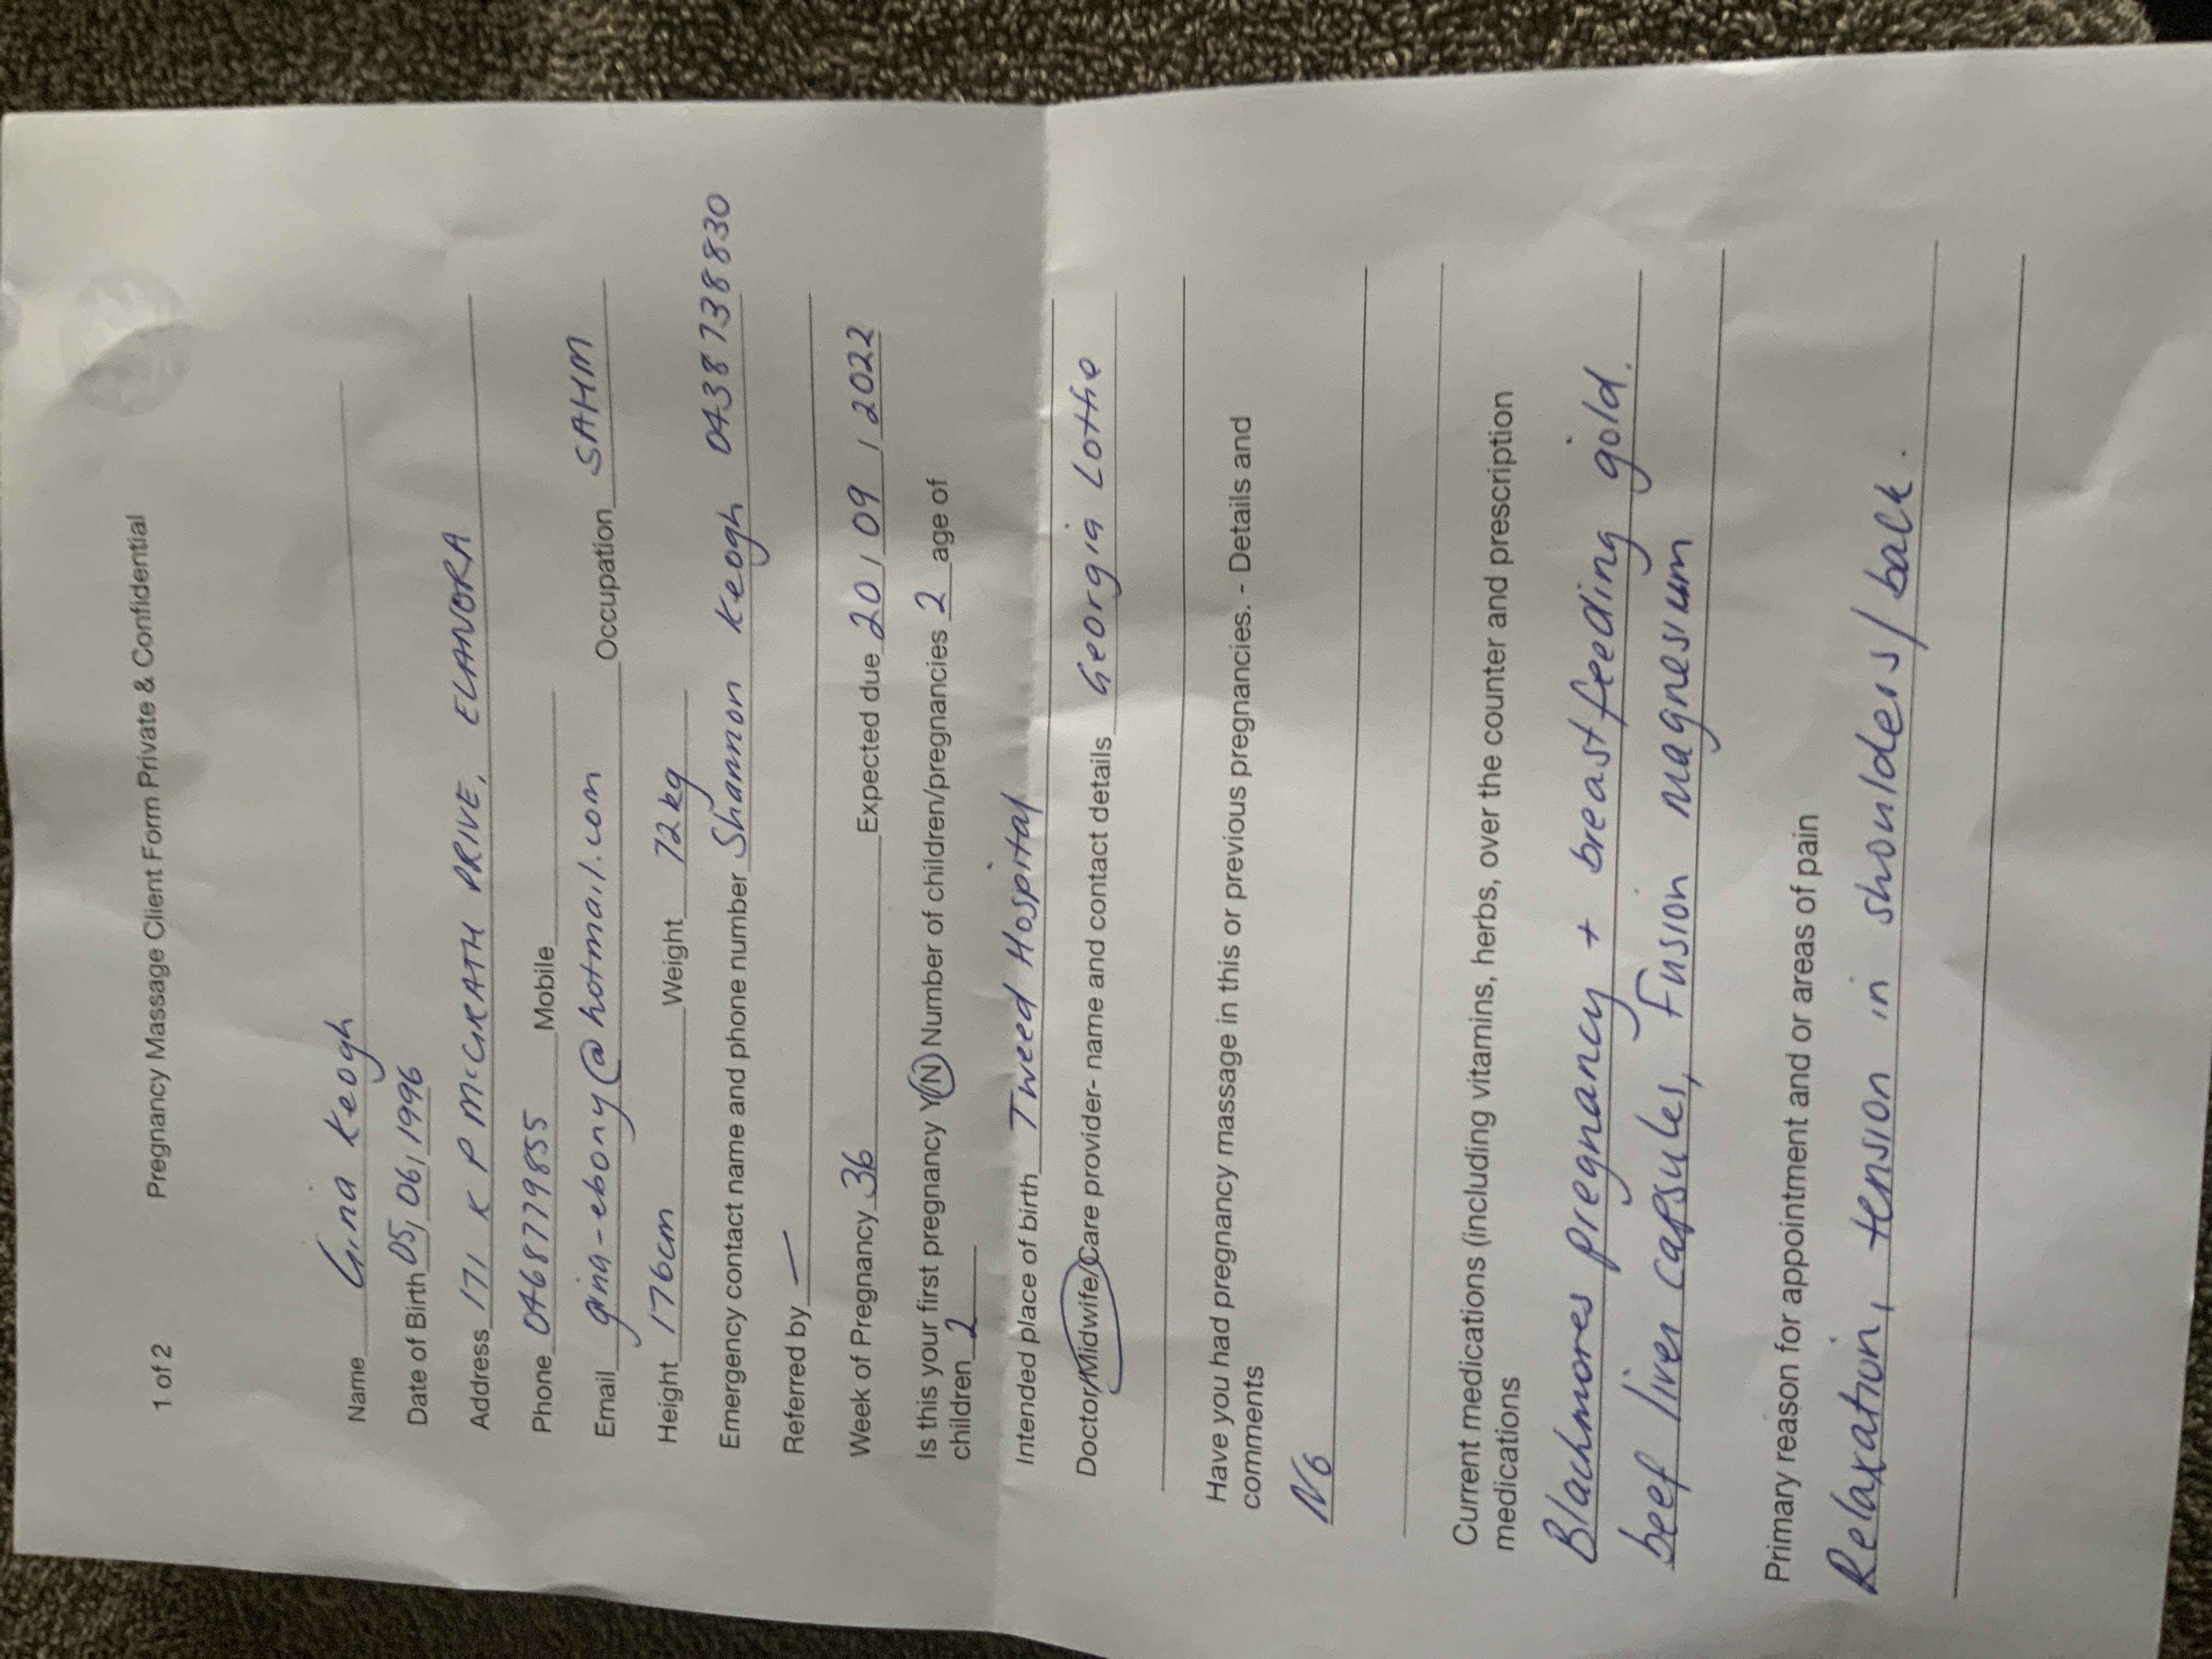 1 of 2 Pregnancy Massage Client Form Private & Confidential
Name Gina Keogh
Date of Birth 05/06/1996
Address 171 K P McGRATH DRIVE, ELANORA
Phone 0468779855 Mobile
Email gina-ebony@hotmail.com Occupation SAHM
Height 176cm Weight 72kg
Emergency contact name and phone number Shannon Keogh 0438738830
Referred by —
Week of Pregnancy 36 Expected due 20/09/2022
Is this your first pregnancy Y/N Number of children/pregnancies 2 age of
children 2
Intended place of birth Tweed Hospital
Doctor/Midwife/Care provider- name and contact details Georgia Lothe
Have you had pregnancy massage in this or previous pregnancies. - Details and
comments
No
Current medications (including vitamins, herbs, over the counter and prescription
medications
Blackmores pregnancy + breastfeeding gold.
beef liver capsules, Fusion magnesium
Primary reason for appointment and or areas of pain
Relaxation, tension in shoulders/back.